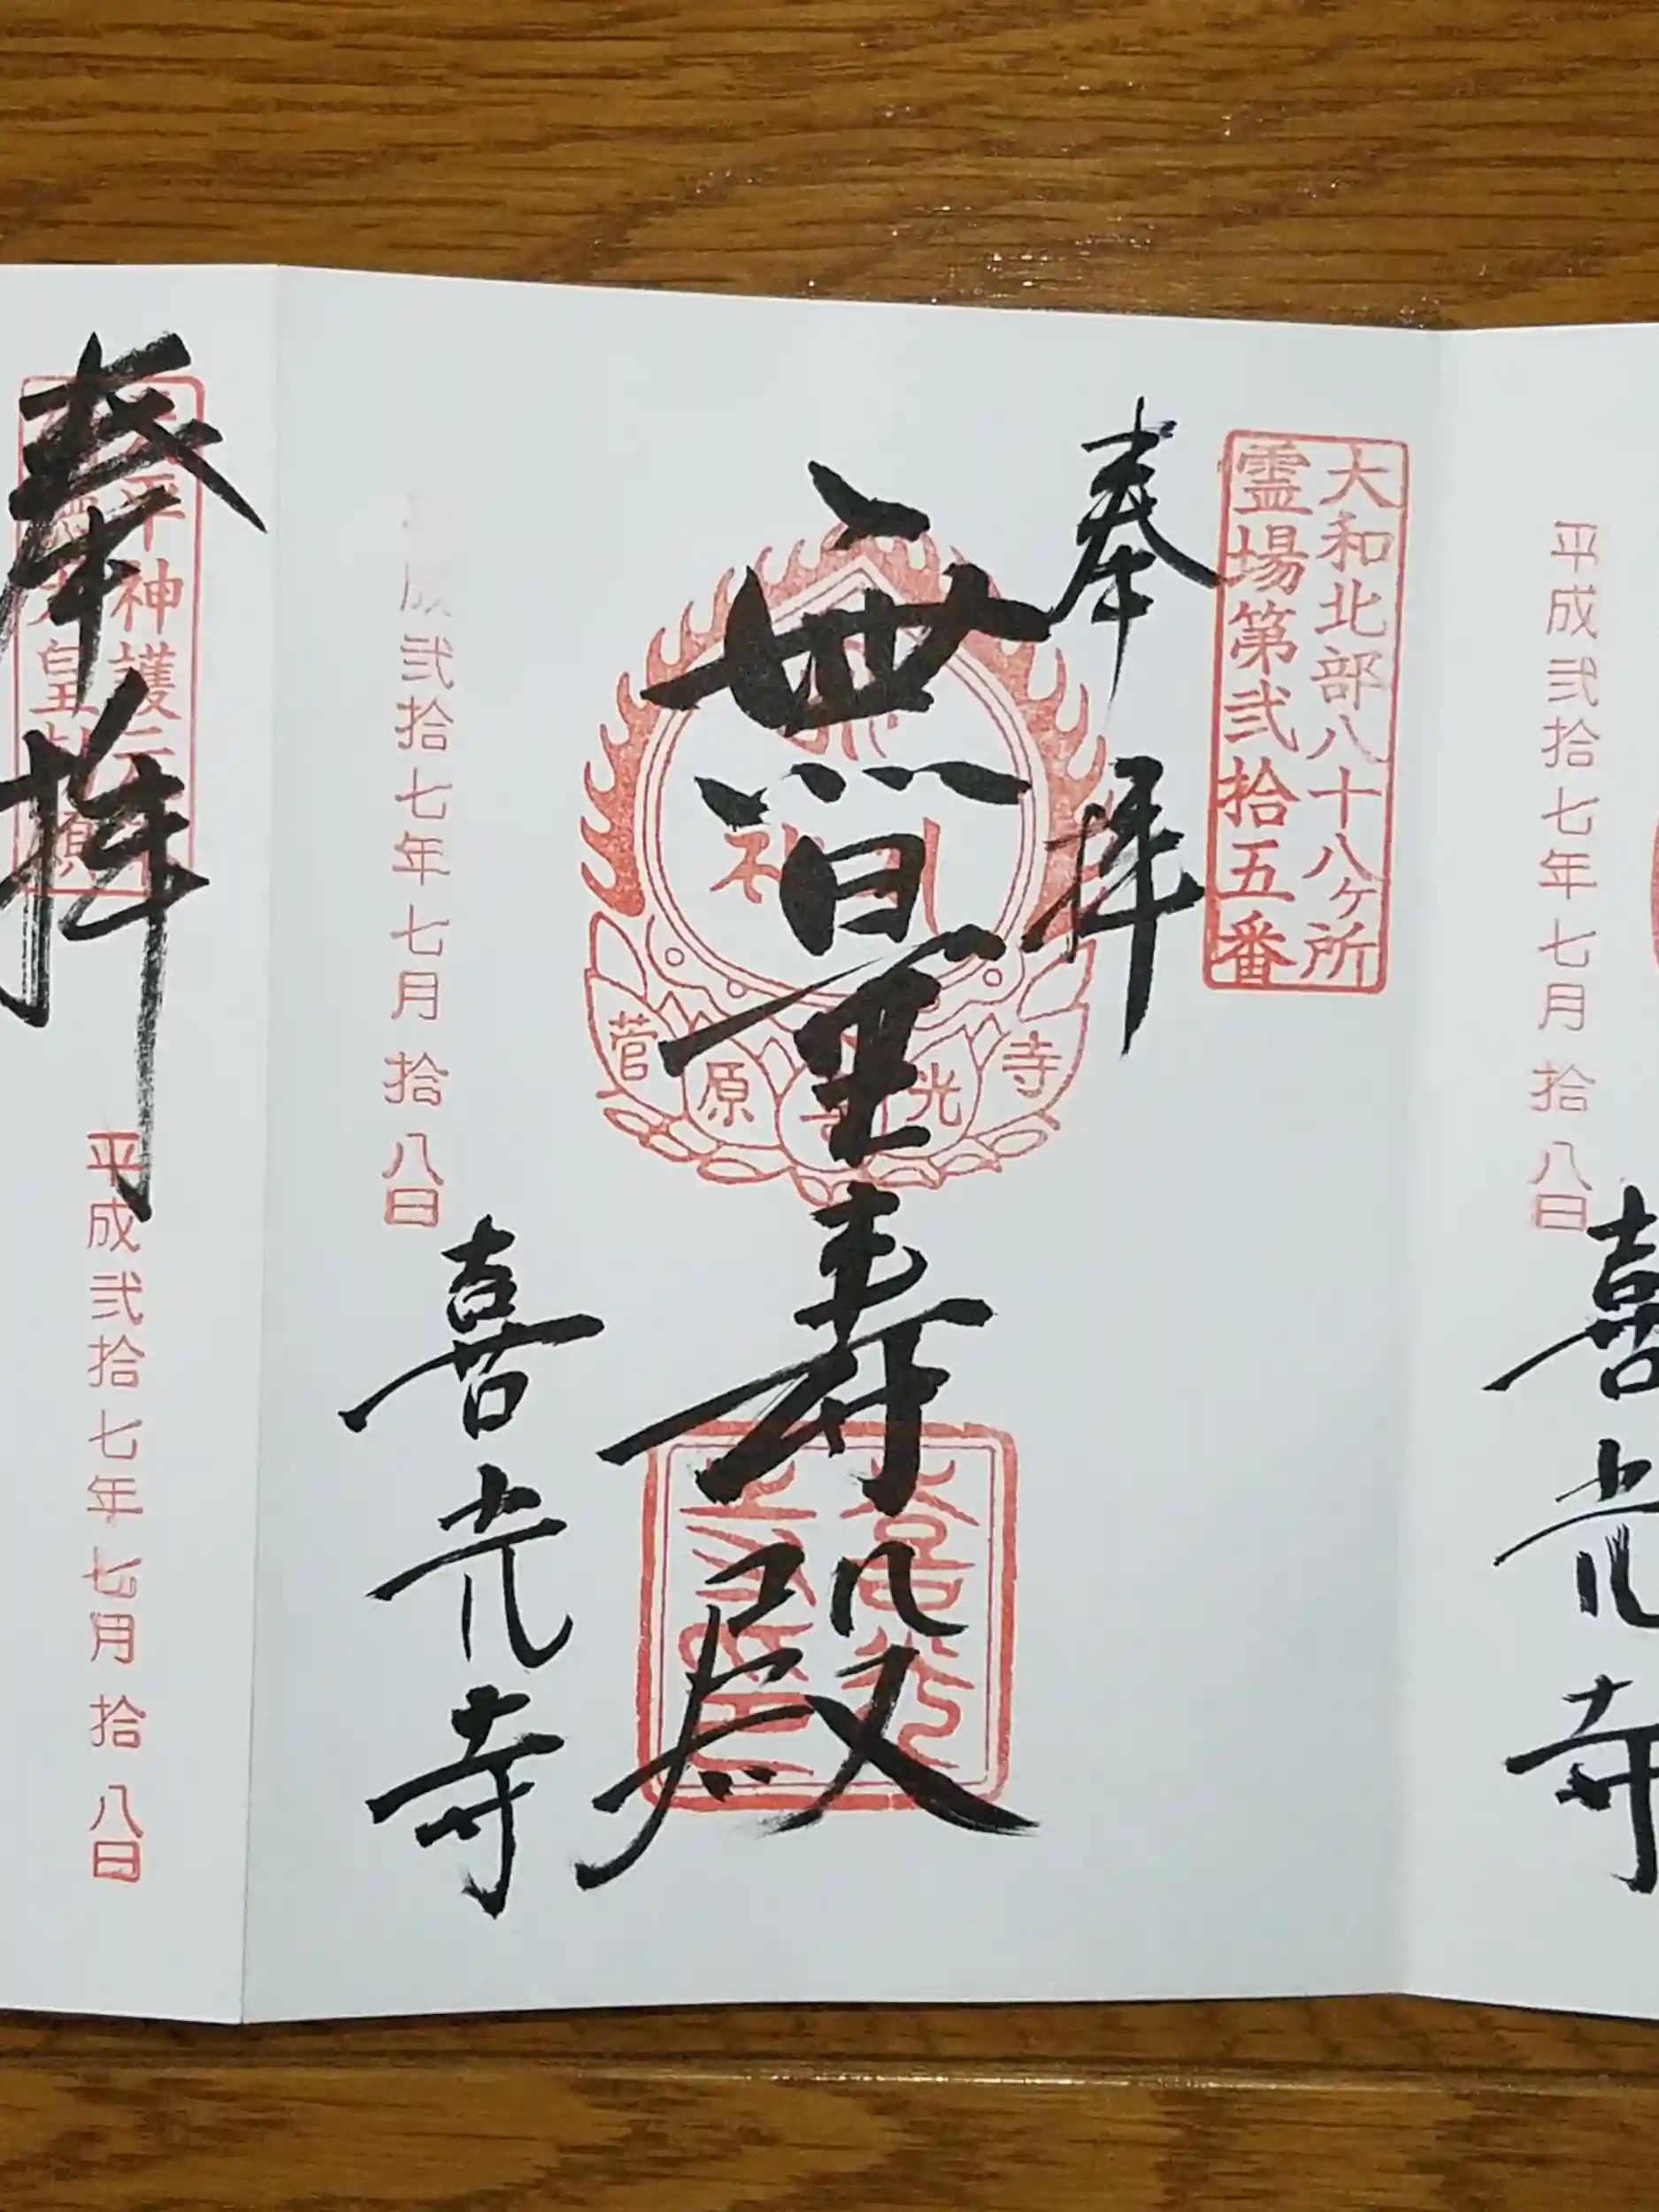 平成弐拾七年七月拾八日
喜光寺
大和北部八十八ヶ所
霊場第弐拾五番
奉拝
無量寿殿
菅原喜光寺
成弐拾七年七月拾八日
喜光寺
奉拝
平成弐拾七年七月拾八日